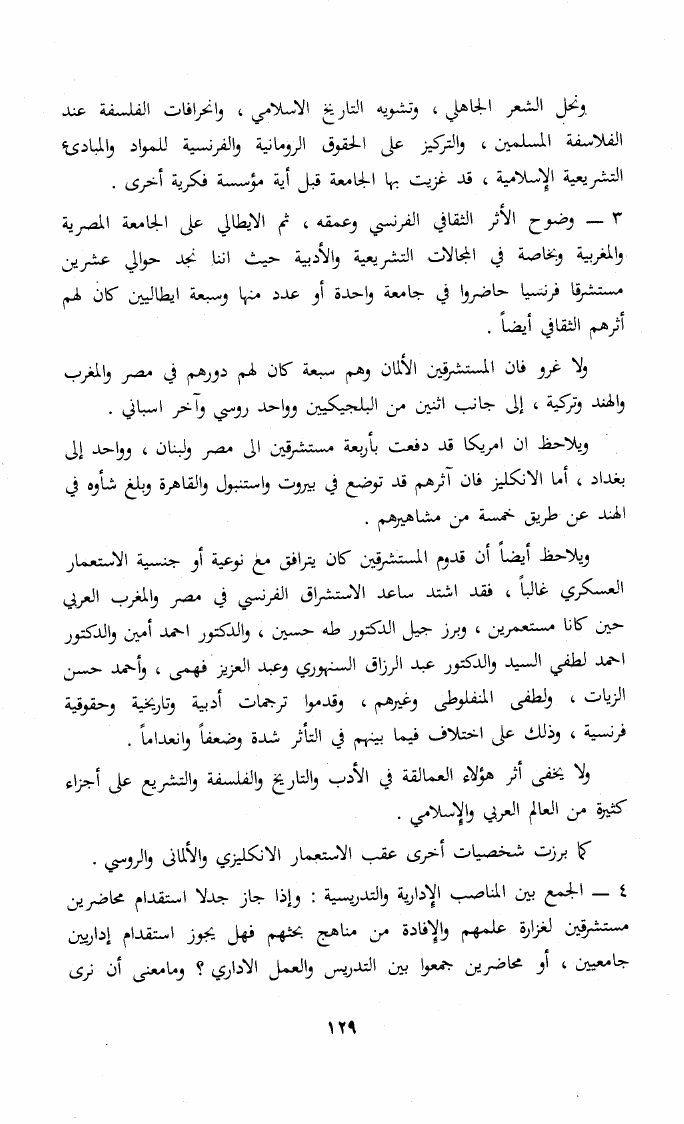 ونحل الشعر الجاهلي ، وتشويه التاريخ الاسلامي ، وانحرافات الفلسفة عند
الفلاسفة المسلمين ، والتركيز على الحقوق الرومانية والفرنسية للمواد والمبادىء
التشريعية الإسلامية ، قد غزيت بها الجامعة قبل أية مؤسسة فكرية أخرى .
٣ ـ وضوح الأثر الثقافي الفرنسي وعمقه ، ثم الايطالي على الجامعة المصرية
والمغربية وبخاصة في المجالات التشريعية والأدبية حيث اننا نجد حوالي عشرين
مستشرقا فرنسيا حاضروا في جامعة واحدة أو عدد منها وسبعة ايطاليين كان لهم
أثرهم الثقافي أيضاً .
ولا غرو فان المستشرقين الألمان وهم سبعة كان لهم دورهم في مصر والمغرب
والهند وتركية ، إلى جانب اثنين من البلجيكيين وواحد روسي وآخر اسباني .
ويلاحظ ان امريكا قد دفعت بأربعة مستشرقين الى مصر ولبنان ، وواحد إلى
بغداد ، أما الانكليز فان آثرهم قد توضع في بيروت واستنبول والقاهرة وبلغ شأوه في
الهند عن طريق خمسة من مشاهيرهم .
ويلاحظ أيضاً أن قدوم المستشرقين كان يترافق مع نوعية أو جنسية الاستعمار
العسكري غالباً ، فقد اشتد ساعد الاستشراق الفرنسي في مصر والمغرب العربي
حين كانا مستعمرين ، وبرز جيل الدكتور طه حسين ، والدكتور احمد أمين والدكتور
احمد لطفي السيد والدكتور عبد الرزاق السنهوري وعبد العزيز فهمى ، وأحمد حسن
الزيات ، ولطفى المنفلوطى وغيرهم ، وقدموا ترجمات أدبية وتاريخية وحقوقية
فرنسية ، وذلك على اختلاف فيما بينهم في التأثر شدة وضعفاً وانعداماً .
ولا يخفى أثر هؤلاء العمالقة في الأدب والتاريخ والفلسفة والتشريع على أجزاء
كثيرة من العالم العربي والإسلامي .
كما برزت شخصيات أخرى عقب الاستعمار الانكليزي والألمانى والروسي .
٤ ـ الجمع بين المناصب الإدارية والتدريسية : وإذا جاز جدلا استقدام محاضرين
مستشرقين لغزارة علمهم والإفادة من مناهج بحثهم فهل يجوز استقدام إداريين
جامعيين ، أو محاضرين جمعوا بين التدريس والعمل الاداري ؟ ومامعنى أن نرى
١٢٩